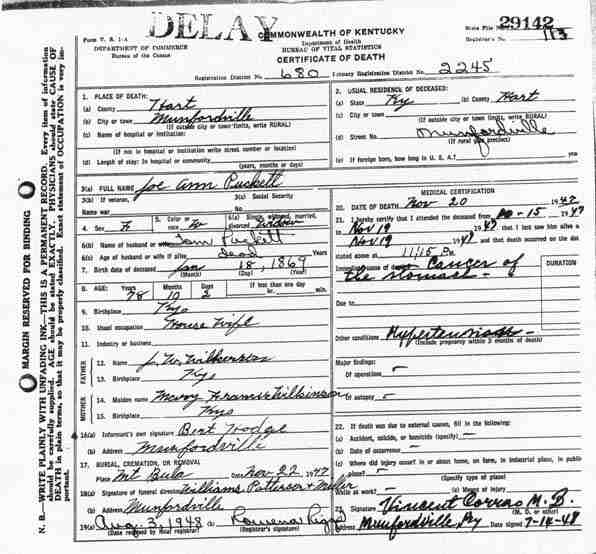 DELAY
State File No. 29142
Form V. S. 1-A
COMMONWEALTH OF KENTUCKY
Registrar's No. 113
DEPARTMENT OF COMMERCE
Department of Health
Bureau of the Census
BUREAU OF VITAL STATISTICS
CERTIFICATE OF DEATH
Registration District No. 680 Primary Registration District No. 2245
MARGIN RESERVED FOR BINDING
N. B.—WRITE PLAINLY WITH UNFADING INK—THIS IS A PERMANENT RECORD. Every item of information
should be carefully supplied. AGE should be stated EXACTLY. PHYSICIANS should state CAUSE OF
DEATH in plain terms, so that it may be properly classified. Exact statement of OCCUPATION is very im-
portant.
1. PLACE OF DEATH:
(a) County Hart
(b) City or town Munfordville
(If outside city or town limits, write RURAL)
(c) Name of hospital or institution:
(If not in hospital or institution write street number or location)
(d) Length of stay: In hospital or community
(years, months or days)
2. USUAL RESIDENCE OF DECEASED:
(a) State Ky (b) County Hart
(c) City or town
(If outside city or town limits, write RURAL)
(d) Street No. Munfordville
(If rural give precinct)
(e) If foreign born, how long in U. S. A.? years
3(a) FULL NAME Joe Ann Puckett
3(b) If veteran, 3(c) Social Security
Name war No.
4. Sex F 5. Color or race W 6(a) Single, widowed, married, divorced Widow
6(b) Name of husband or wife Sam Puckett
6(c) Age of husband or wife if alive dead Years
7. Birth date of deceased Jan 18, 1869
(Month) (Day) (Year)
8. AGE: Years Months Days If less than one day
78 10 2 hr. min.
9. Birthplace Ky
10. Usual occupation House Wife
11. Industry or business
FATHER
12. Name J. W. Wilkinson
13. Birthplace Ky
MOTHER
14. Maiden name Wilkinson
15. Birthplace Ky
16(a) Informant's own signature Bert Hodge
(b) Address Munfordville
17. BURIAL, CREMATION, OR REMOVAL
Place Mt Date Nov 22 1947
18(a) Signature of funeral director Williams, Patterson &
(b) Address Munfordville
19(a) Aug. 3, 1948 (b)
(Date received by local registrar) (Registrar's signature)
MEDICAL CERTIFICATION
20. DATE OF DEATH Nov 20 1947
21. I hereby certify that I attended the deceased from 10-15 1947
to Nov 19 1947 that I last saw him alive on
Nov 19 1947 and that death occurred on the date
stated above at 11/15 P m
Immediate cause of death Cancer of
the stomach
DURATION
Due to
Other conditions Hypertension
(Include pregnancy within 3 months of death)
Major findings:
Of operations
Of autopsy
22. If death was due to external causes, fill in the following:
(a) Accident, suicide, or homicide (specify)
(b) Date of occurrence
(c) Where did injury occur? in or about home, on farm, in industrial place, in public
place?
(Specify type of place)
While at work? (e) Means of injury
23. Signature Vincent Corrao M. D.
(M. D. or other)
Address Munfordville, Ky Date signed 7-14-48